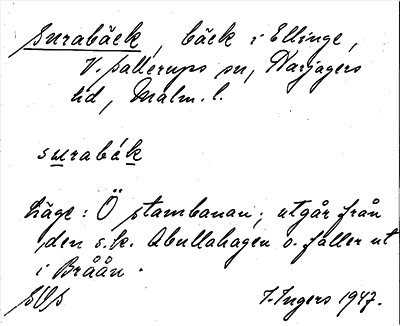 Surabäck, bäck i Ellinge,
V. Sallerups sn, Harjagers
hd, Malm. l.
surabäk
Läge: Ö stambanan; utgår från
den s.k. Abullahagen o. faller ut
i Bråån.
I. Ingers 1947.